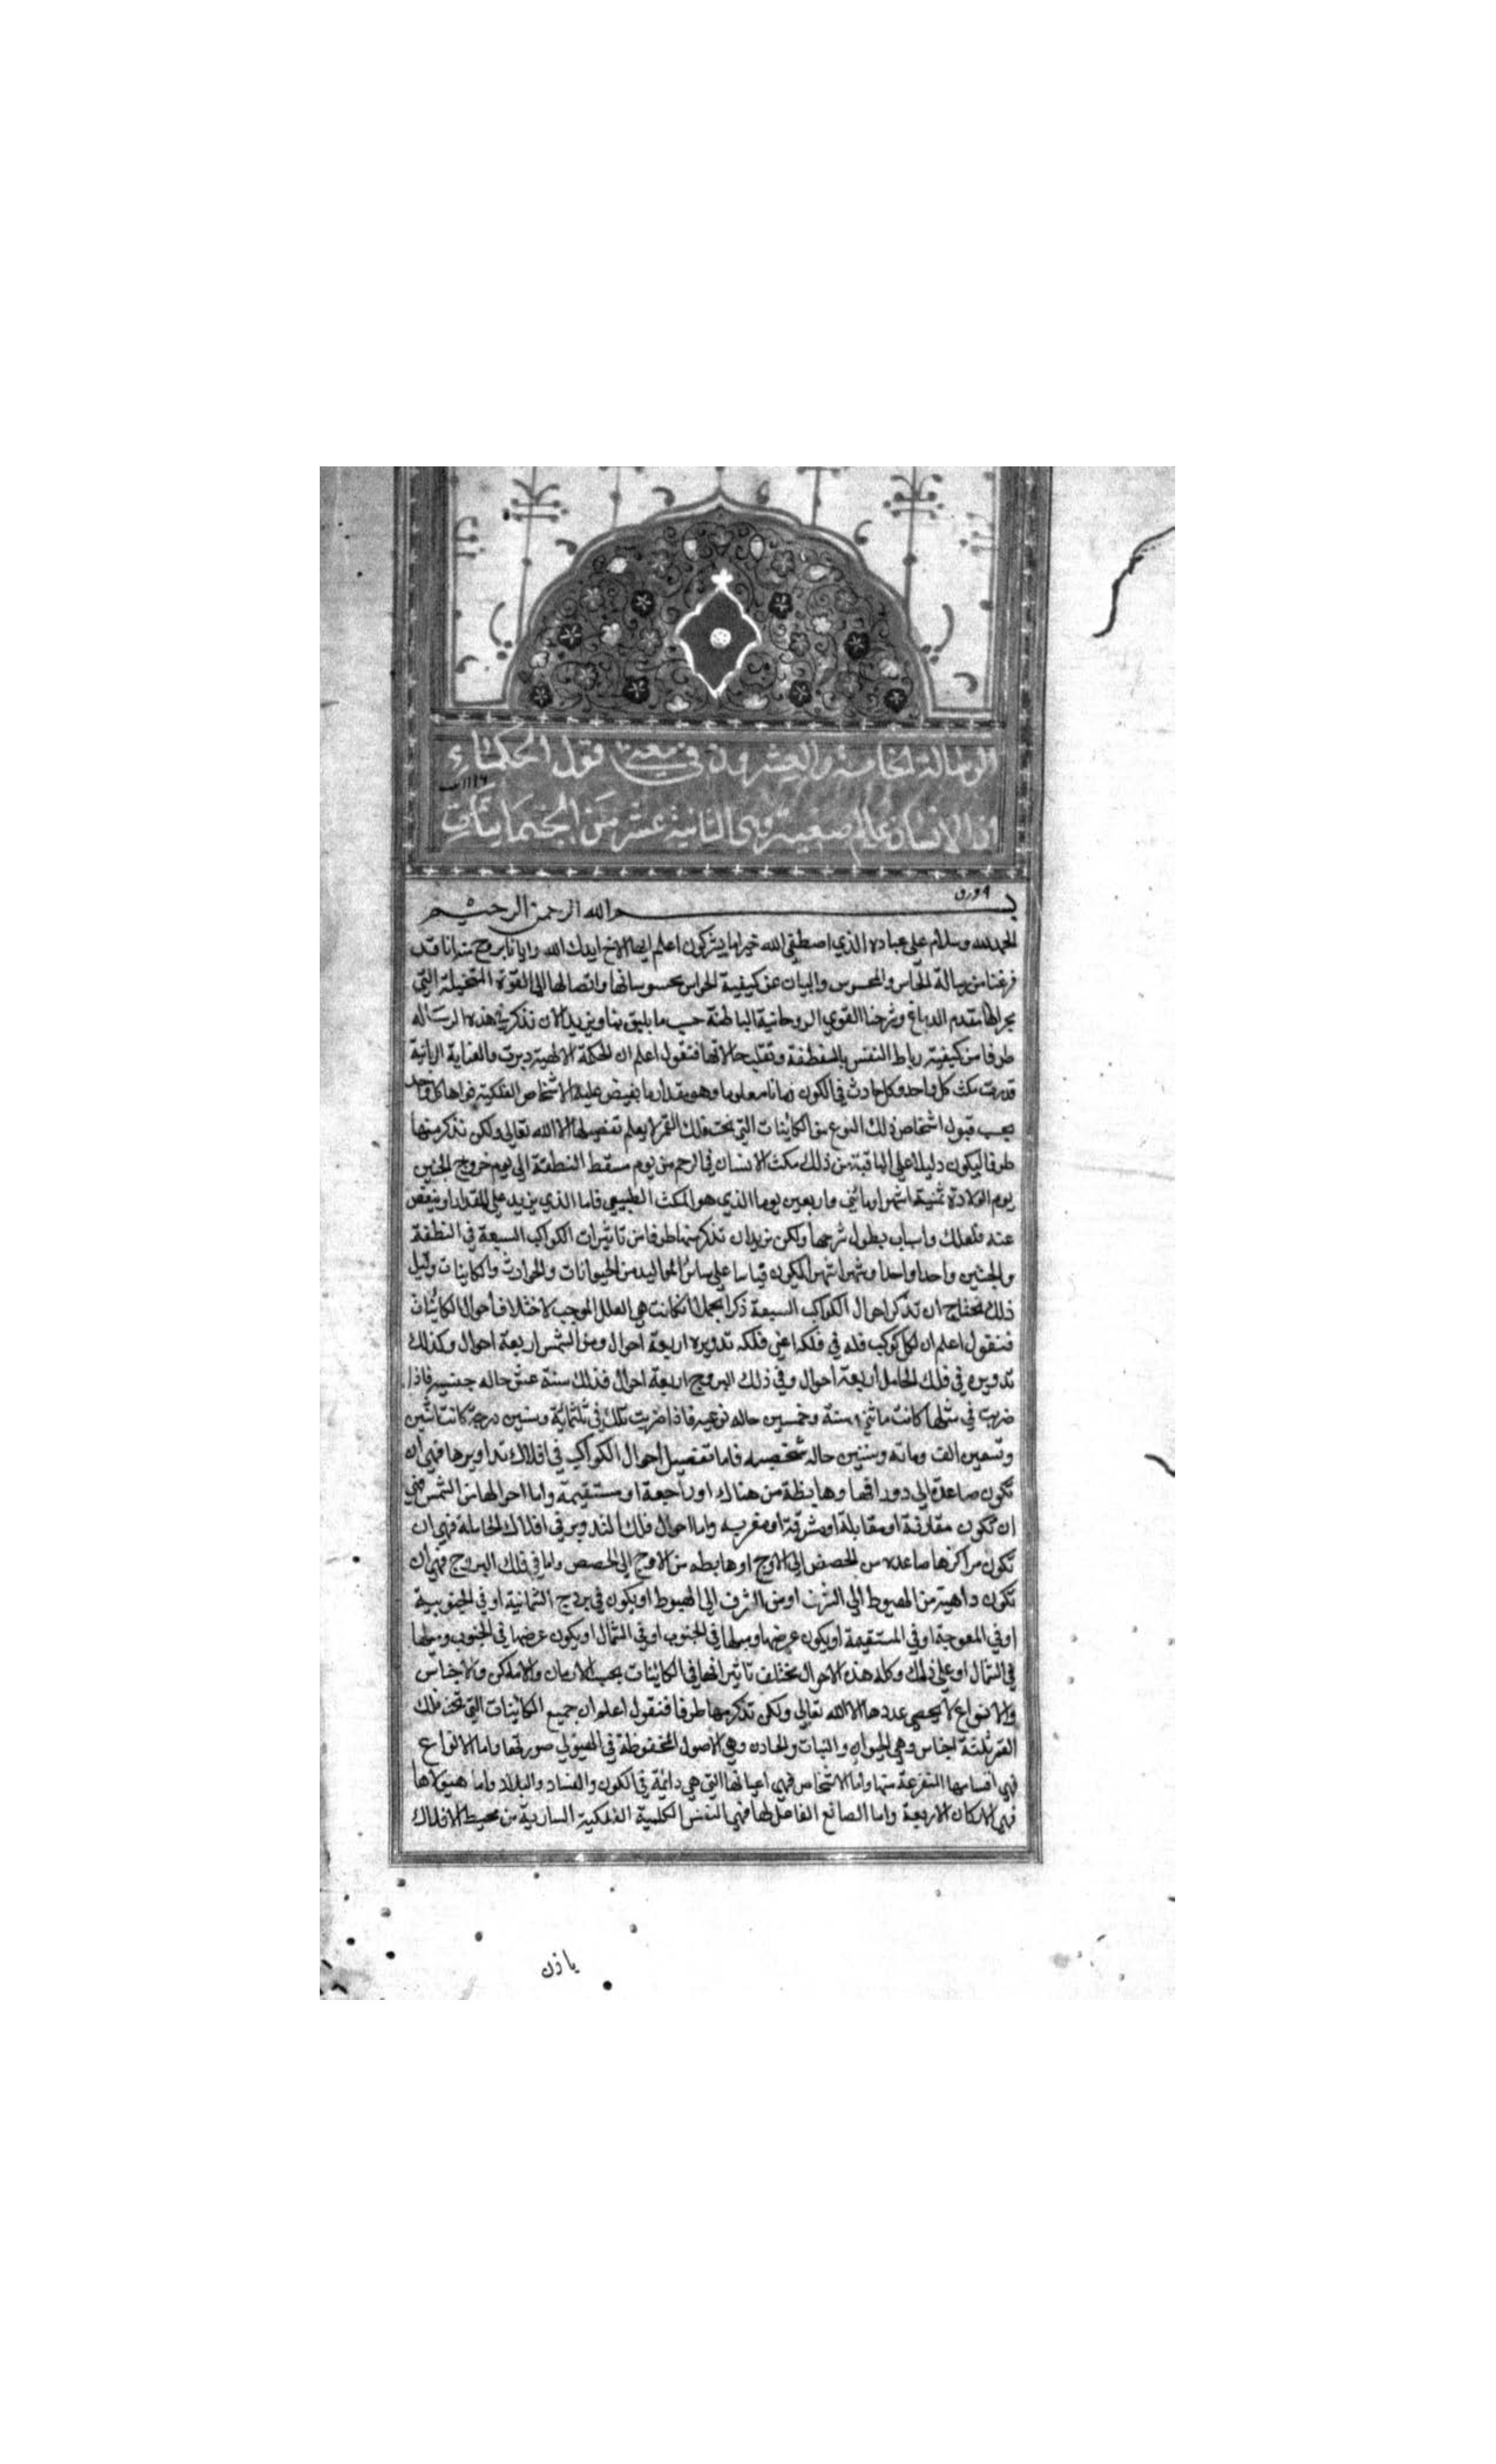 الرسالة الخامسة والعشرون في معنى قول الحكماء
ان الانسان عالم صغير وهي الثانية عشر من الجسمانيات
٩ ورق
بسم الله الرحمن الرحيم
الحمدلله وسلام على عباده الذي اصطفى الله خير اما يشركون اعلم ايها الاخ ايدك الله وايانا بروح منه انا قد
فرغنا من رسالة الحاس والمحسوس والبيان عن كيفية الحواس بمحسوساتها واتصالها الى القوة المتخيلة التي
مجراها مقدم الدماغ وشرحنا القوى الروحانية الباطنة حسب ما يليق بنا ونريد الان نذكر في هذه الرساله
طرفا من كيفية رباط النفس بالنطفة وتقلب حالاتها فنقول اعلم ان الحكمة الالهية دبرت والعناية الربانية
قدرت مكث كل واحد وكل حادث في الكون زمانا معلوما وهو مقدار ما يفيض عليه الاشخاص الفلكية قواها كل واحد
بحسب قبول اشخاص ذلك النوع من الكائنات التي تحت فلك القمر لا يعلم تفصيلها الا الله تعالى ولكن نذكر منها
طرفا ليكون دليلا على الباقية من ذلك مكث الانسان في الرحم من يوم مسقط النطفة الى يوم خروج الجنين
يوم الولادة ثمنية اشهر او مائتي واربعين يوما الذي هو المكث الطبيعي فاما الذي يزيد على المقدار او ينقص
عنه فلعلل واسباب يطول شرحها ولكن نريد ان نذكر منها طرفا من تاثيرات الكواكب السبعة في النطفة
والجنين واحدا واحدا وشهرا شهرا ليكون قياسا على سائر المواليد من الحيوانات والحوادث والكاينات وقبل
ذلك نحتاج ان نذكر احوال الكواكب السبعة ذكرا مجملا اذ كانت هي العلل الموجب لاختلاف احوال الكائنات
فنقول اعلم ان لكل كوكب فله في فلكه اعني فلكه تدويره اربعة احوال ومن الشمس اربعة احوال وكذلك
تدويره في فلك الحامل اربعة احوال وفي ذلك البروج اربعة احوال فذلك ستة عشر حاله جنسيه فاذا
ضربت في مثلها كانت مائتي وستة وخمسين حاله نوعيه فاذا ضربت تلك في ثلثمائة وستين درجة كانت اثنين
وتسعين الف ومائه وستين حاله شخصيه فاما تفصيل احوال الكواكب في افلاك تداويرها فهي ان
تكون صاعدة الى دور افقها وهابطة من هناك او راجعة او مستقيمة واما احوالها من الشمس فهي
ان تكون مقارنة او مقابلة او مشرقة او مغربيه واما احوال فلك التدوير في افلاك الحاملة فهي ان
تكون مراكزها صاعده من الحضيض الى الاوج او هابطه من الاوج الى الحضيض واما في فلك البروج فهي ان
تكون ذاهبة من الهبوط الى الشرف او من الشرف الى الهبوط او يكون في بروج الشمالية او في الجنوبية
او في المعوجة او في المستقيمة او يكون عرضها وميلها في الجنوب او في الشمال او يكون عرضها في الجنوب وميلها
في الشمال او على ذلك وكله هذه الاحوال تختلف تاثيراتها في الكائنات بحسب الازمان والاماكن والاجناس
والانواع لا يحصى عددها الا الله تعالى ولكن نذكر منها طرفا فنقول اعلم ان جميع الكائنات التي تحت فلك
القمر ثلثة اجناس وهي الحيوان والنبات والمعادن وهي الاصول المحفوظة في الهيولى صورتها واما الانواع
فهي اقسامها المتفرعة منها واما الاشخاص فهي اعيانها التي هي دائمة في الكون والفساد والبلاد واما هيولاها
فهي الاركان الاربعة واما الصانع الفاعل لها فهي النفس الكلية الفلكية السارية من محيط الافلاك
باذن